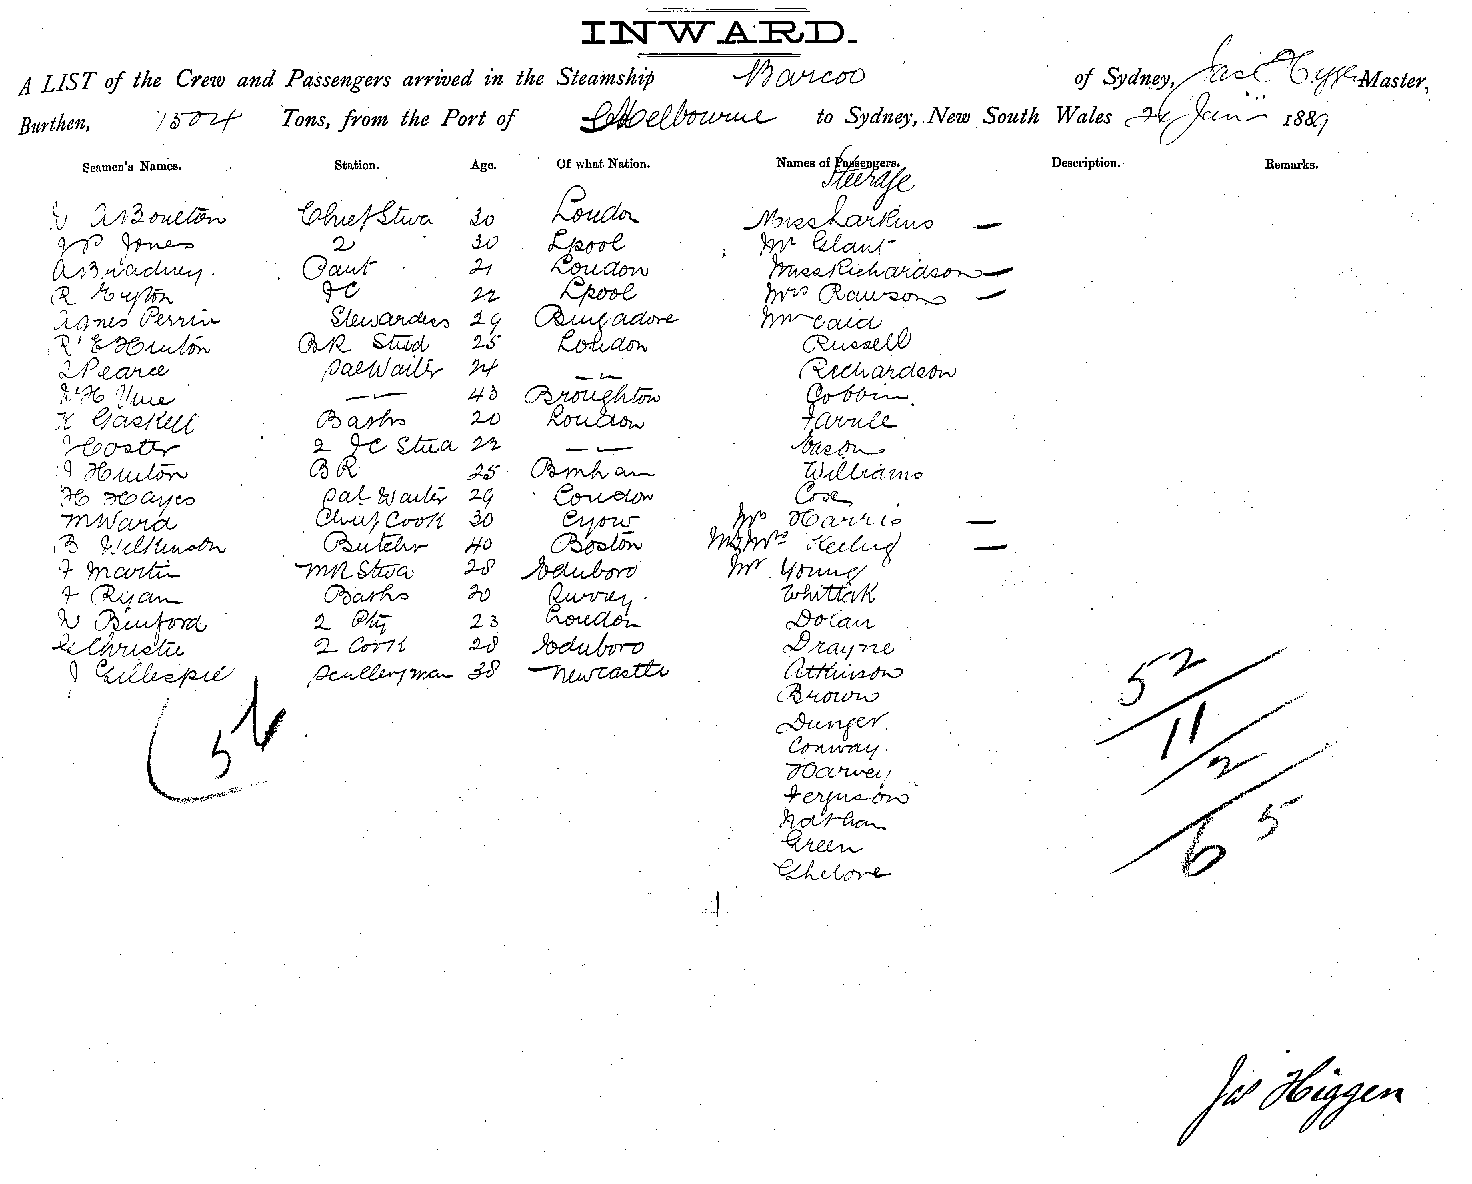 INWARD.
A LIST of the Crew and Passengers arrived in the Steamship Barcoo of Sydney, Master,
Burthen, 1504 Tons, from the Port of Melbourne to Sydney, New South Wales 1889
Seamen's Names. Station. Age. Of what Nation. Names of Passengers. Description. Remarks.
Steerage
A Boulton Chief Stwd 30 London Miss Larkins —
J P Jones 2 30 Lpool Mr Glant
Pant 21 London Miss Richardson —
R 22 Lpool Mrs Rawson —
Agnes Perrin Stewardess 29 Mr Caid
R E Hinton BR Stwd 25 London Russell
J Pearce Sal Waiter 24 — — Richardson
— — 43 Broughton Gobbin
K Gaskell Baths 20 London
J Coster 2 Stwd 22 — — Eason
J Hinton BR 25 Bmham Williams
H Hayes Sal Waiter 29 London Cose
M Ward Chief Cook 30 Mrs Harris —
B Wilkinson Butcher 40 Boston Mr & Mrs —
F Martin Stwd 28 Edinboro Mr Young
F Ryan Baths 20 Surrey
W Binford 2 Ptry 23 London Dolan
G Christie 2 Cook 28 Edinboro Drayne
J Gillespie Sculleryman 38 Newcastle Atkinson
Brown
Dunger
Conway
Harvey
Ferguson
Nathan
Green
56
52
11
2
65
Jas Higgen